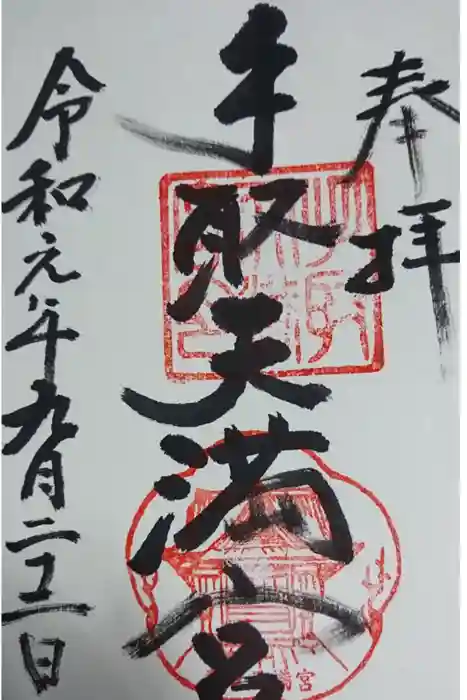 奉拝
手取天満宮
令和元年九月二十二日
満宮